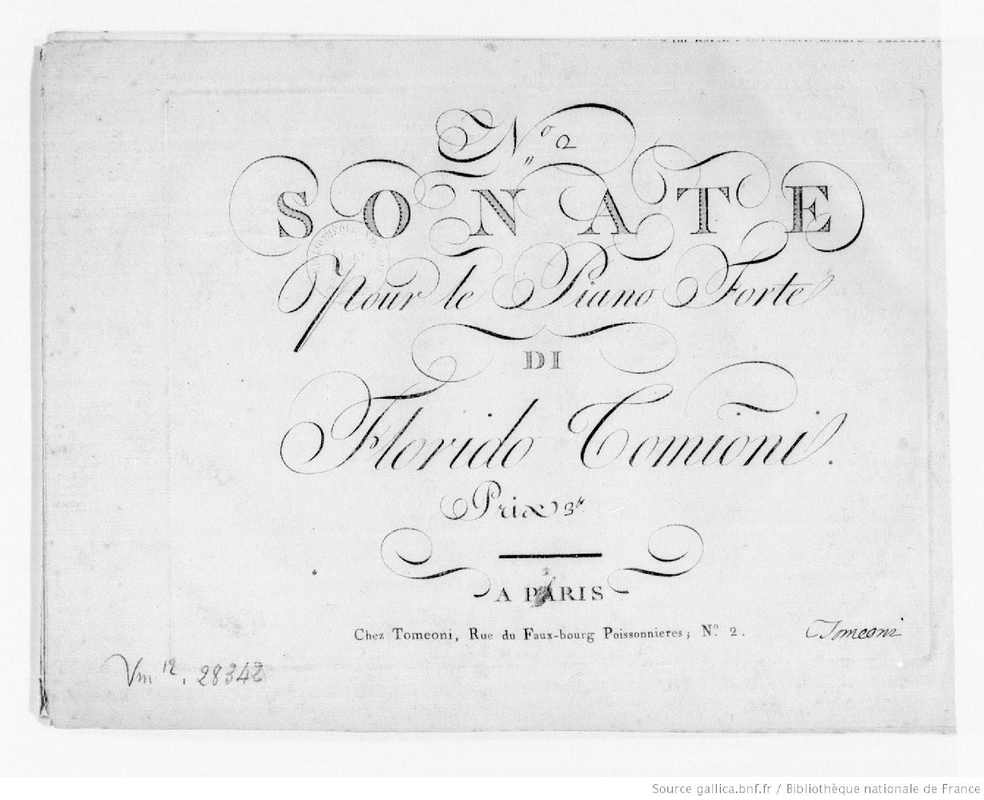 N.º 2
SONATE
Pour le Piano Forte
DI
Florido Tomioni.
Prix 3#
A PARIS
Chez Tomeoni, Rue du Faux-bourg Poissonnieres; N.º 2.
Tomeoni
Vm 12. 28342
Source gallica.bnf.fr / Bibliothèque nationale de France